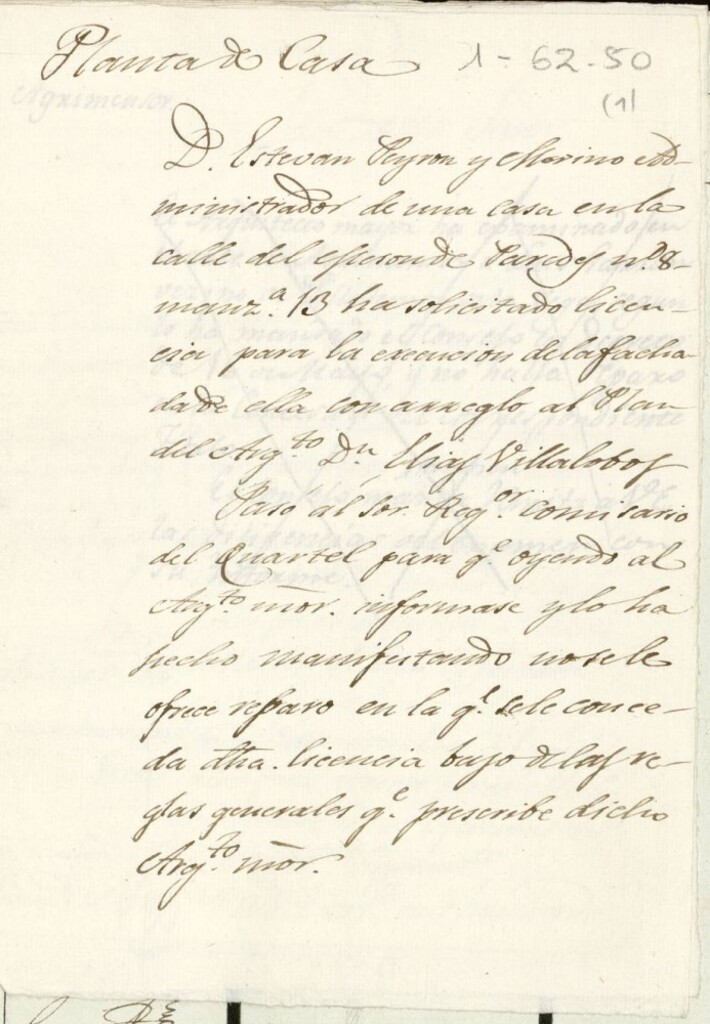 Planta de Casa 1-62-50
(1)
Agrimensor
D. Estevan Peyron y Merino Ad-
ministrador de una casa en la
calle del Meson de Paredes n.º 8
manz.ª 13 ha solicitado licen-
cia para la execucion de la facha
da de ella con arreglo al Plan
del Arq.to D.n Elias Villalobos
Paso al Sor. Reg.or comisario
del Quartel para q.e oyendo al
Arq.to mor. informase y lo ha
hecho manifestando no se le
ofrece reparo en la q.e se le conce-
da dha. licencia bajo de las re-
glas generales q.e prescribe dicho
Arq.to mor.